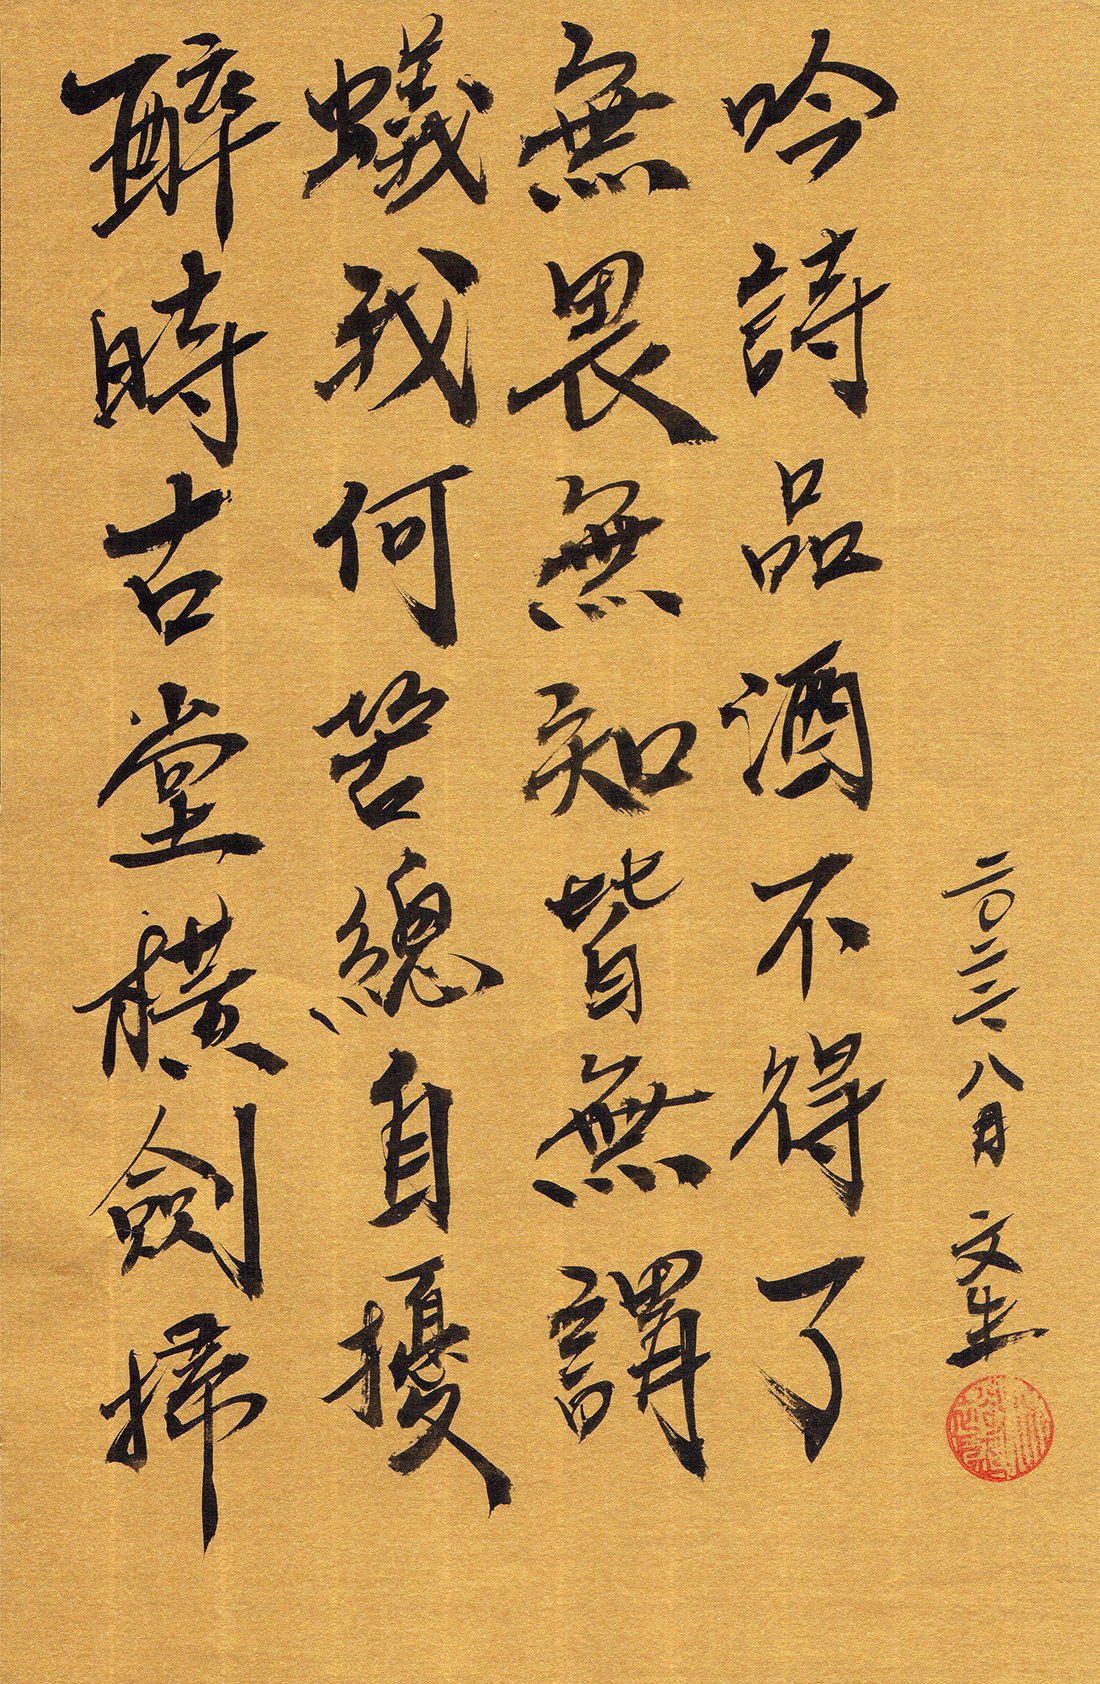 醉時古堂橫劍掃
蟻我何苦總自擾
無畏無知皆無謂
吟詩品酒不得了
二〇二二八月 文生